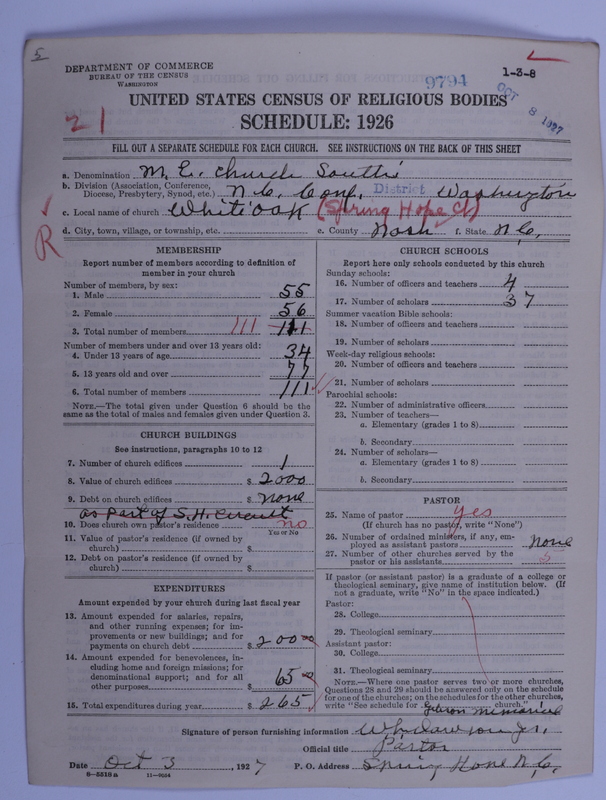 5
DEPARTMENT OF COMMERCE
BUREAU OF THE CENSUS
WASHINGTON
1-3-8
9794
OCT 8 1927
UNITED STATES CENSUS OF RELIGIOUS BODIES
SCHEDULE: 1926
21
FILL OUT A SEPARATE SCHEDULE FOR EACH CHURCH. SEE INSTRUCTIONS ON THE BACK OF THIS SHEET
a. Denomination M. E. Church South
b. Division (Association, Conference,
Diocese, Presbytery, Synod, etc.) N. C. Conf. District Washington
c. Local name of church White Oak (Spring Hope Ch)
R
d. City, town, village, or township, etc. e. County Nash f. State N. C.
MEMBERSHIP
Report number of members according to definition of
member in your church
Number of members, by sex:
1. Male 55
2. Female 56
3. Total number of members 111 111
Number of members under and over 13 years old:
4. Under 13 years of age 34
5. 13 years old and over 77
6. Total number of members 111
NOTE.—The total given under Question 6 should be the
same as the total of males and females given under Question 3.
CHURCH BUILDINGS
See instructions, paragraphs 10 to 12
7. Number of church edifices 1
8. Value of church edifices $ 2000
9. Debt on church edifices $ none
as part of S. H. Circuit
10. Does church own pastor's residence no
Yes or No
11. Value of pastor's residence (if owned by
church) $
12. Debt on pastor's residence (if owned by
church) $
EXPENDITURES
Amount expended by your church during last fiscal year
13. Amount expended for salaries, repairs,
and other running expenses; for im-
provements or new buildings; and for
payments on church debt $ 200
14. Amount expended for benevolences, in-
cluding home and foreign missions; for
denominational support; and for all
other purposes $ 65
15. Total expenditures during year $ 265
CHURCH SCHOOLS
Report here only schools conducted by this church
Sunday schools:
16. Number of officers and teachers 4
17. Number of scholars 37
Summer vacation Bible schools:
18. Number of officers and teachers
19. Number of scholars
Week-day religious schools:
20. Number of officers and teachers
21. Number of scholars
Parochial schools:
22. Number of administrative officers
23. Number of teachers—
a. Elementary (grades 1 to 8)
b. Secondary
24. Number of scholars—
a. Elementary (grades 1 to 8)
b. Secondary
PASTOR
25. Name of pastor yes
(If church has no pastor, write "None")
26. Number of ordained ministers, if any, em-
ployed as assistant pastors none
27. Number of other churches served by the
pastor or his assistants 5
If pastor (or assistant pastor) is a graduate of a college or
theological seminary, give name of institution below. (If
not a graduate, write "No" in the space indicated.)
Pastor:
28. College
29. Theological seminary
Assistant pastor:
30. College
31. Theological seminary
NOTE.—Where one pastor serves two or more churches,
Questions 28 and 29 should be answered only on the schedule
for one of the churches; on the schedules for the other churches,
write "See schedule for Gibson Memorial church."
Signature of person furnishing information
Official title Pastor
Date Oct 3, 1927 P. O. Address Spring Hope N. C.
8-5518a 11-9264